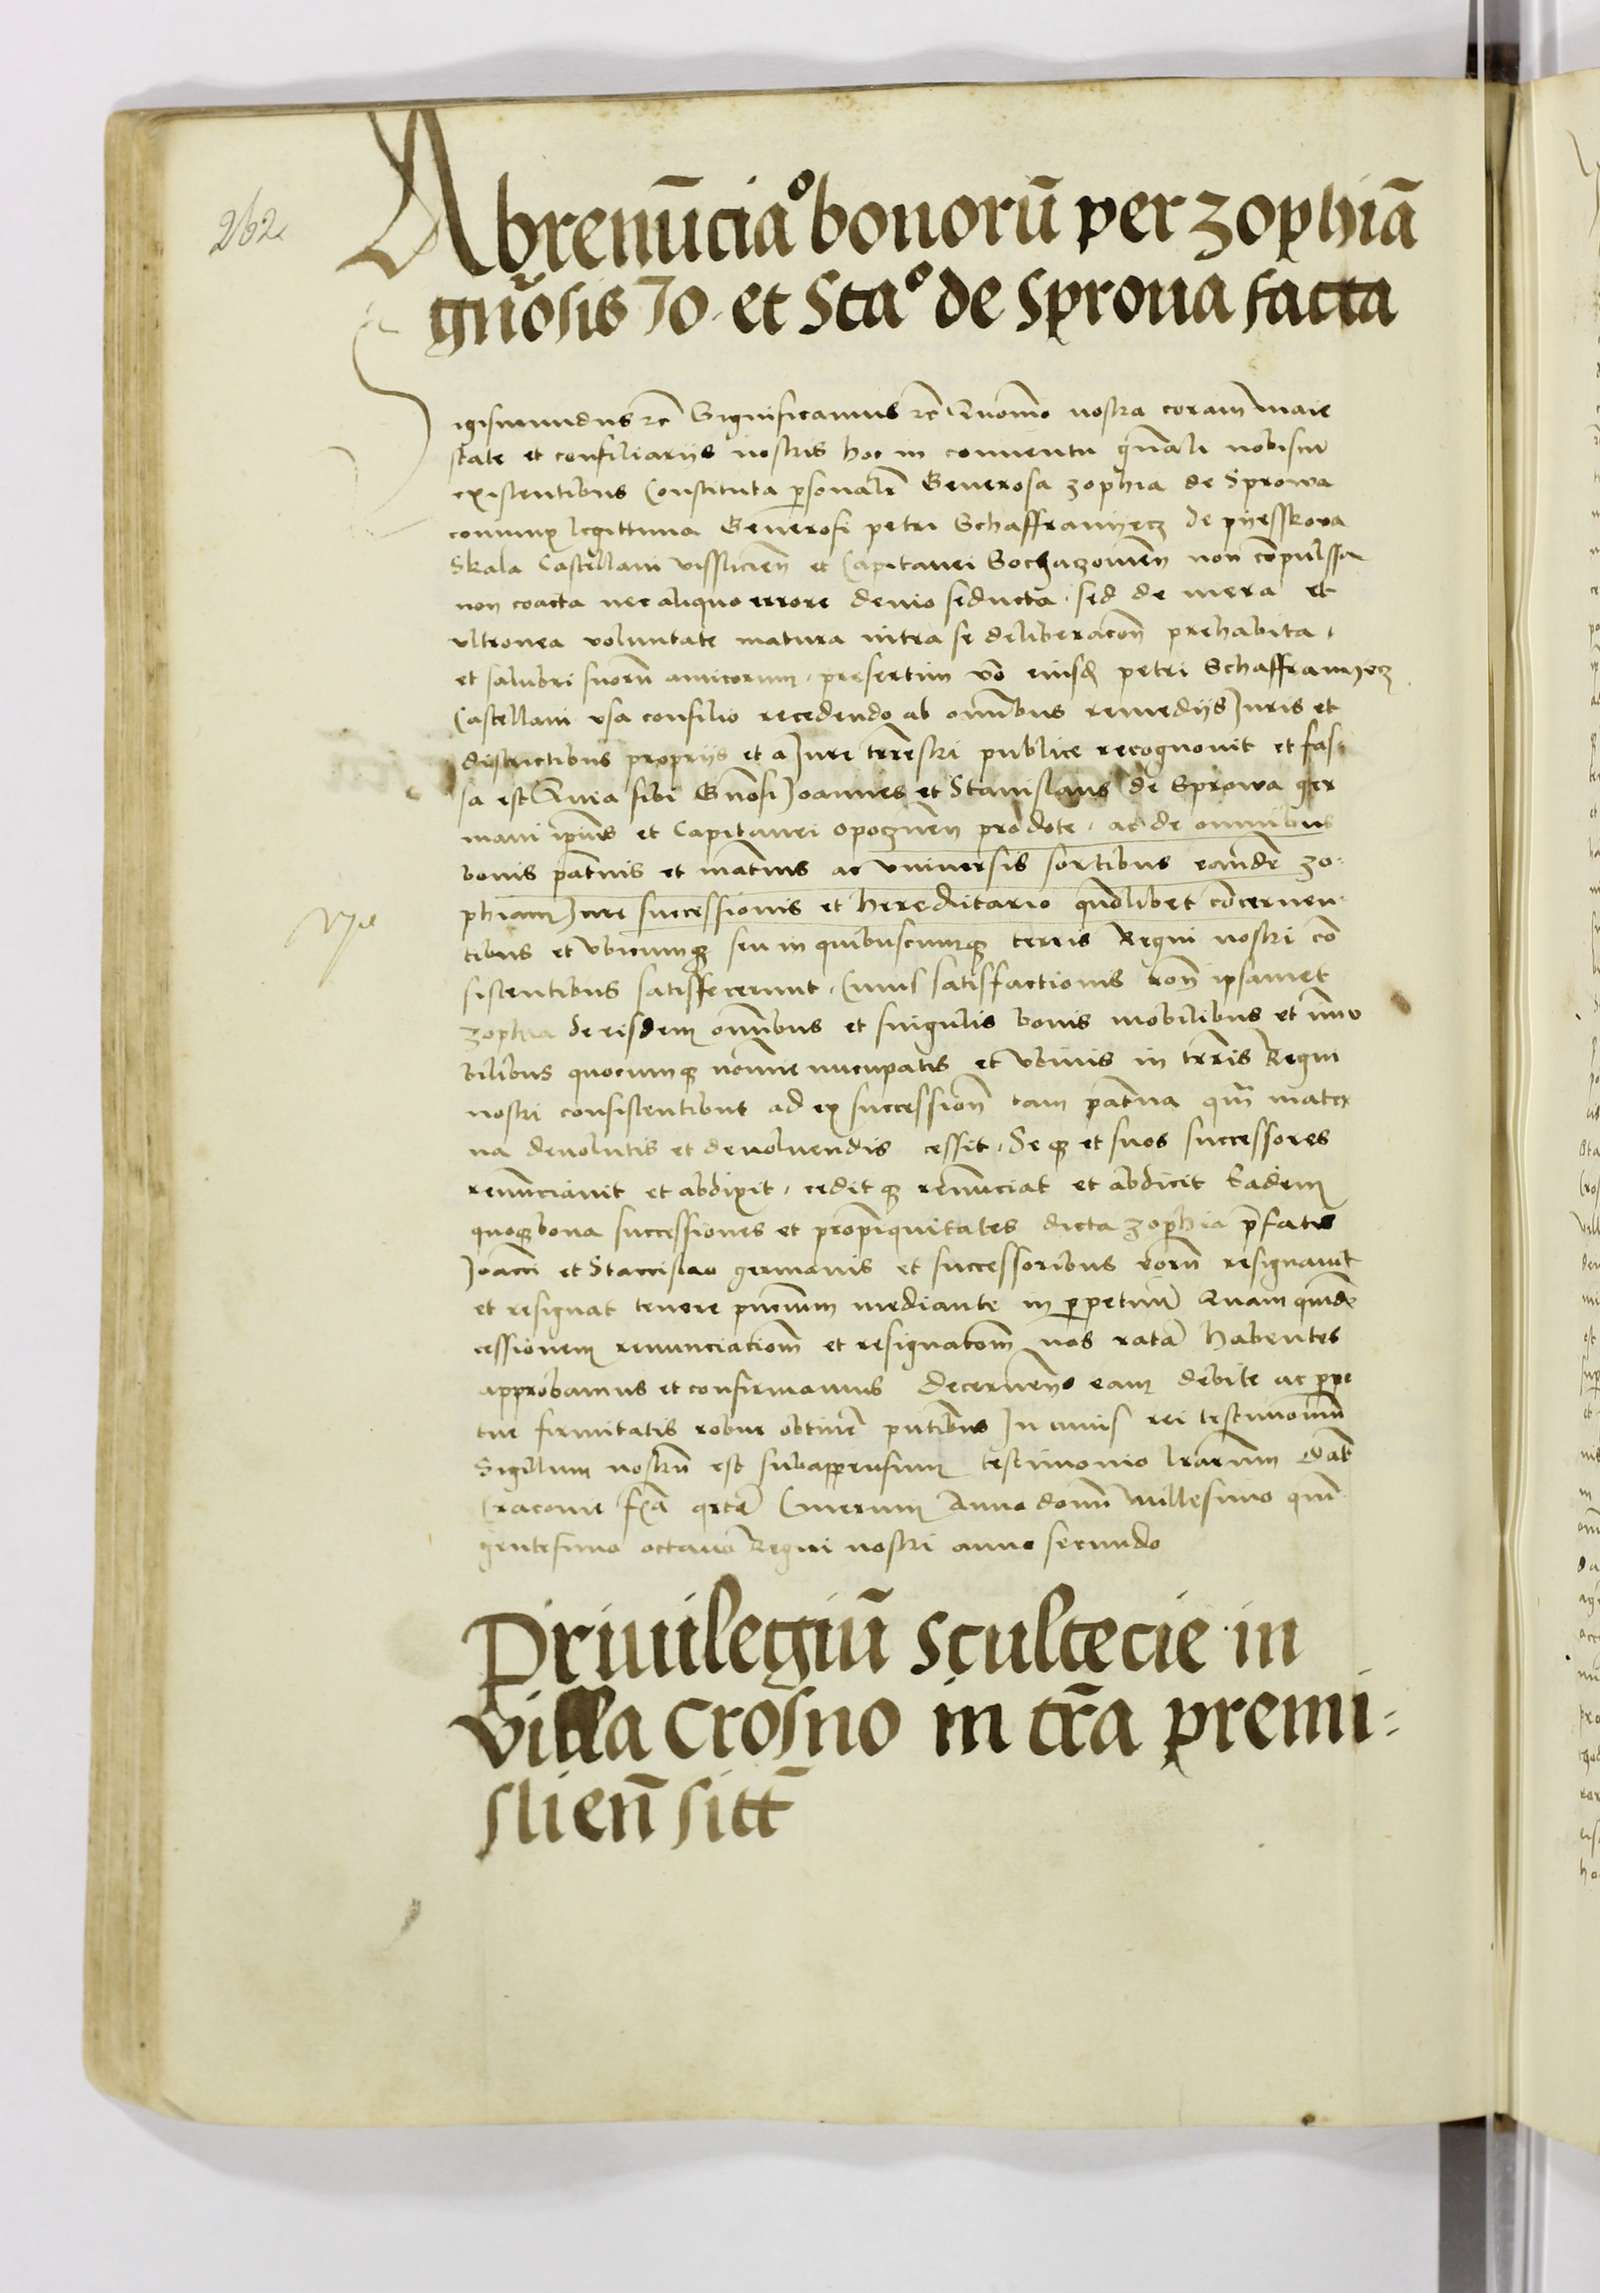 262
Abrenu͞ciaº bonoru͞ per zophia͞
gn͞osis Jo. et Staº de Sproua facta
Sigismundus rc̄ Significamus rc̄ Quomo nostra coram maie
state et consiliarijs nostris hoc in conuentu gn͞ali nobiscu͞
existentibus Constituta p̱sonalr̄ Generosa zophia de Sprowa
coniunx legittima Generosi petri Schaffranyecz de pyesskova
Skala Castellani visslicien̄ et Capitanei Sochaczouien̄ non co͞pulssa
non coacta nec aliquo errore deuio seducta . sed de mera et
vltronea voluntate matura intra se deliberacon̄ prehabita .
et salubri suoru͞ amicorum . presertim vo͞ eiusd̄ petri Schaffranyecz
Castellani vsa consilio recedendo ab om̄ibus remedijs Juris et
districtibus proprijs et a Jure tr̄restri publice recognouit et fas
sa est Quia sibi Gn͞osi Joannes et Stanislaus de Sprowa ger
mani ip̄ius et Capitanei opocznen̄ pro dote . ac de omnibus
bonis pat̄nis et mat̄nis ac vniuersis sortibus eande͞ zo
phiam Jure successionis et hereditario quo͞libet co͞cernen
tibus et vbicumqꝫ seu in quibuscumqꝫ terris Regni nostri con
sistentibus satisfecerunt . Cuius satisfactionis ron̄ ipsamet
zophia de eisdem om̄ibus et singulis bonis mobilibus et im̄o
bilibus quocumqꝫ no͞ie nu͞cupatis et vbiuis in tr̄ris Regni
nostri consistentibus ad ex succession̄ tam pat̄na qm̄ mater
na deuolutis et deuoluendis cessit . Se qꝫ et suos successores
renu͞ciauit et abdixit . cedit qꝫ renu͞ciat et abdicit Eadem
quoqꝫ bona successiones et propi͞quitates dicta zophia p̄fatis
Joan̄i et Stanislao germanis et successoribus eoru͞ resignauit
et resignat tenore p̄n̄cium mediante in p̱petuu͞ Quam quide͞
cessionem renunciatiom̄ et resignatom̄ nos rata͞ habentes
approbamus et confirmamus decernen̄ eam debite ac p̱pe
tue firmitatis robur obtiner̄ p̄ntibus In cuius rei testimoniu͞
Sigillum nostru͞ est subappensum testimonio lr̄arum Dat̄
Cracouie f̄ia q̄rta Cinerum Anno domi͞ Millesimo quin
gentesimo octauo Regni nostri anno secundo
Priuilegiu͞ scultecie in
villa Crosno in tr̄a premi
slien̄ sitt̄